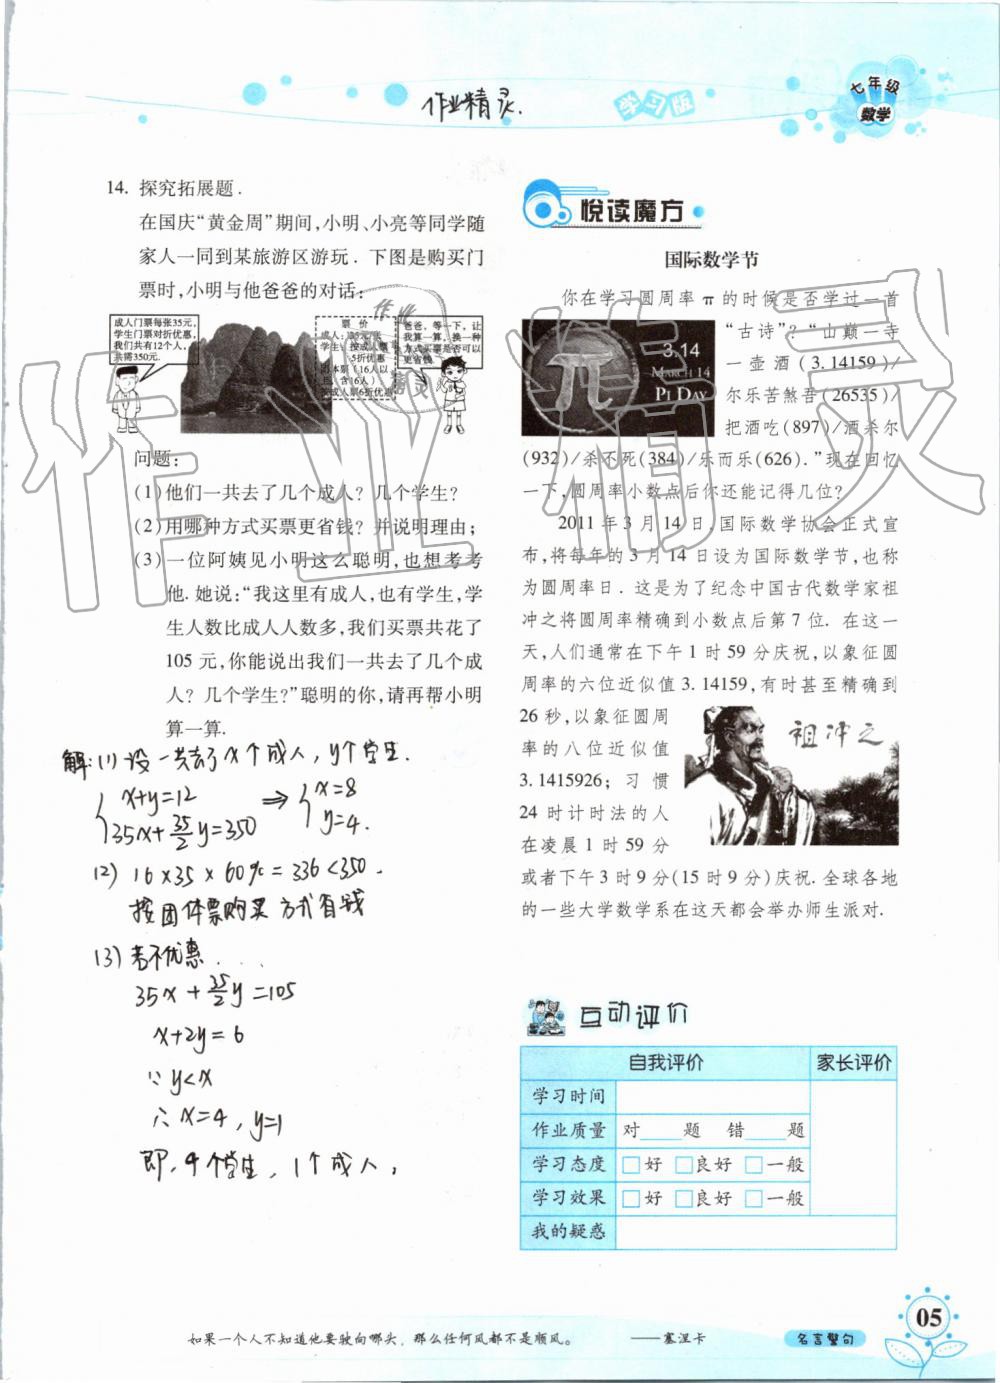 作业精灵.
学习版
七年级
数学
14. 探究拓展题.
在国庆“黄金周”期间,小明、小亮等同学随
家人一同到某旅游区游玩. 下图是购买门
票时,小明与他爸爸的对话:
成人门票每张35元,
学生门票对折优惠,
我们共有12个人,
共需350元.
票 价
成人:35元/张
学生:按成人票
5折优惠
团体票(16人以
上,含16人)
按成人票6折优惠
爸爸,等一下,让
我算一算,换一种
方式买票是否可以
更省钱
问题:
(1)他们一共去了几个成人?几个学生?
(2)用哪种方式买票更省钱?并说明理由;
(3)一位阿姨见小明这么聪明,也想考考
他.她说:“我这里有成人,也有学生,学
生人数比成人人数多,我们买票共花了
105元,你能说出我们一共去了几个成
人?几个学生?”聪明的你,请再帮小明
算一算.
解:(1)设一共去了x个成人,y个学生.
x+y=12 ⇒ x=8
35x+35/2y=350 y=4.
(2) 16×35×60%=336<350.
按团体票购买方式省钱
(3)若不优惠...
35x+35/2y=105
x+2y=6
∵y<x
∴x=4,y=1
即,4个学生,1个成人;
悦读魔方
国际数学节
你在学习圆周率π的时候是否学过一首
“古诗”?“山巅一寺
一壶酒(3.14159)/
尔乐苦煞吾(26535)/
把酒吃(897)/酒杀尔
(932)/杀不死(384)/乐而乐(626).”现在回忆
一下,圆周率小数点后你还能记得几位?
3.14
MARCH 14
PI DAY
2011年3月14日,国际数学协会正式宣
布,将每年的3月14日设为国际数学节,也称
为圆周率日. 这是为了纪念中国古代数学家祖
冲之将圆周率精确到小数点后第7位. 在这一
天,人们通常在下午1时59分庆祝,以象征圆
周率的六位近似值3.14159,有时甚至精确到
26秒,以象征圆周
率的八位近似值
3.1415926;习惯
24时计时法的人
在凌晨1时59分
或者下午3时9分(15时9分)庆祝. 全球各地
的一些大学数学系在这天都会举办师生派对.
祖冲之
互动评价
自我评价 家长评价
学习时间
作业质量 对____题 错____题
学习态度 □好 □良好 □一般
学习效果 □好 □良好 □一般
我的疑惑
如果一个人不知道他要驶向哪头,那么任何风都不是顺风。 ——塞涅卡
名言警句
05
作业精灵